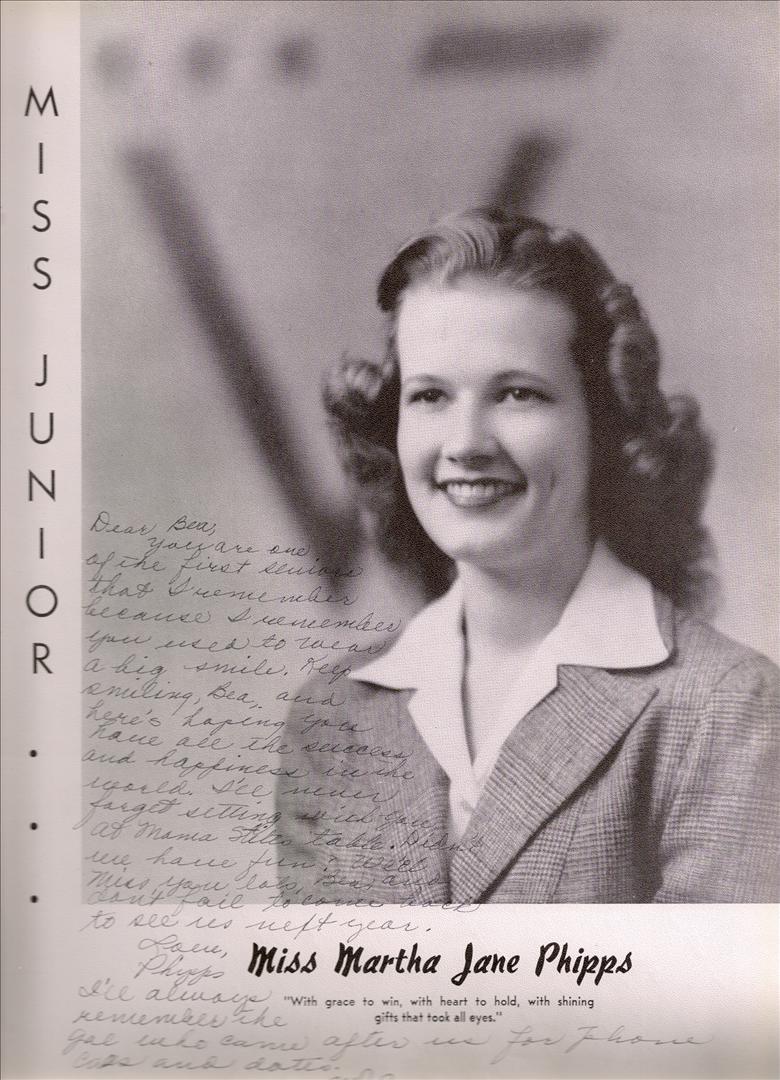 MISS JUNIOR . . .
Dear Bea,
You are one
of the first seniors
that I remember
because I remember
you used to wear
a big smile. Keep
smiling, Bea, and
here's hoping you
have all the success
and happiness in the
world. I'll never
forget setting with you
at Mama table. Didn't
we have fun? We'll
miss you lots, Bea, and
don't fail to come back
to see us next year.
Love,
Phipps
Miss Martha Jane Phipps
"With grace to win, with heart to hold, with shining
gifts that took all eyes."
I'll always
remember the
gal who came after us for phone
and dates.